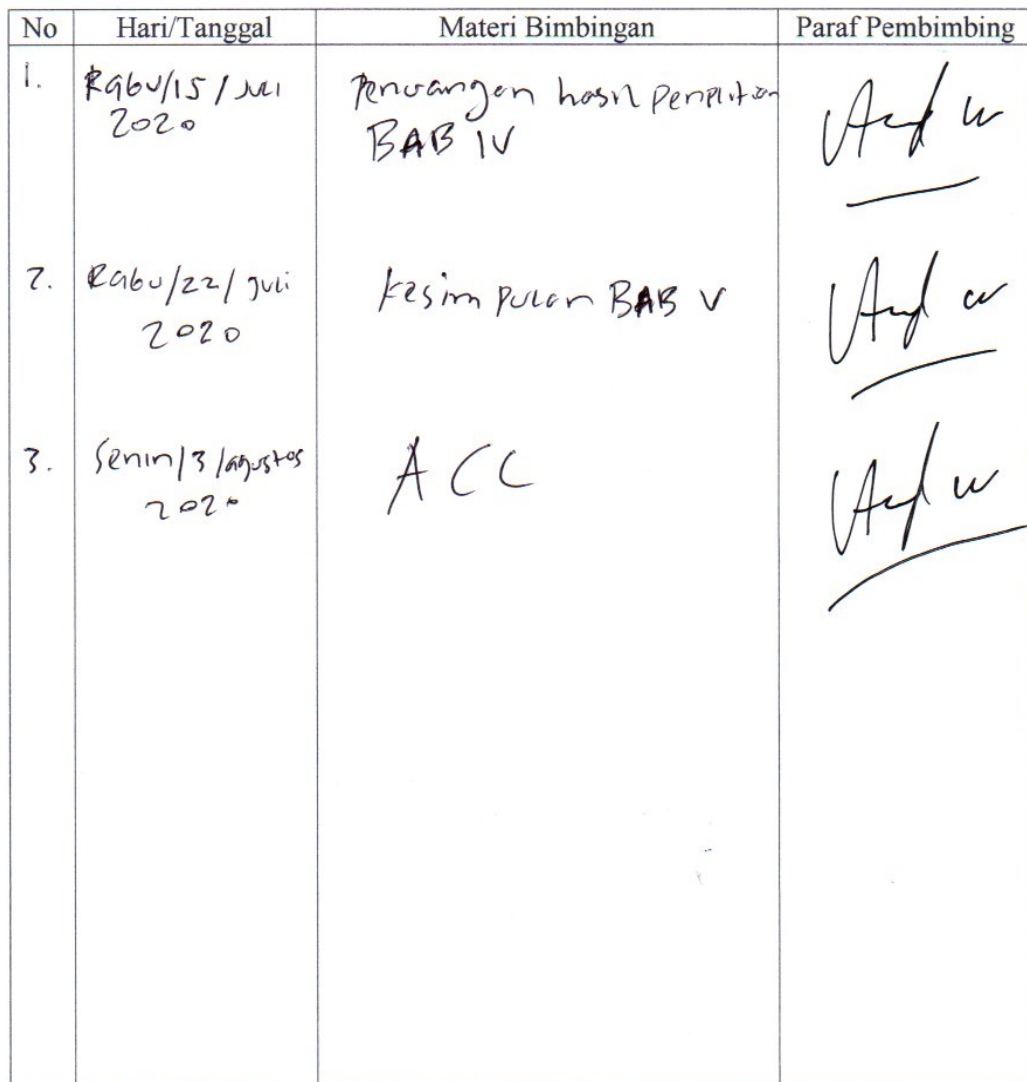 No Hari/Tanggal Materi Bimbingan Paraf Pembimbing
1. Rabu/15/Juli Penuangan hasil penelitian
2020 BAB IV
2. Rabu/22/Juli Kesimpulan BAB V
2020
3. Senin/3/agustos ACC
2020